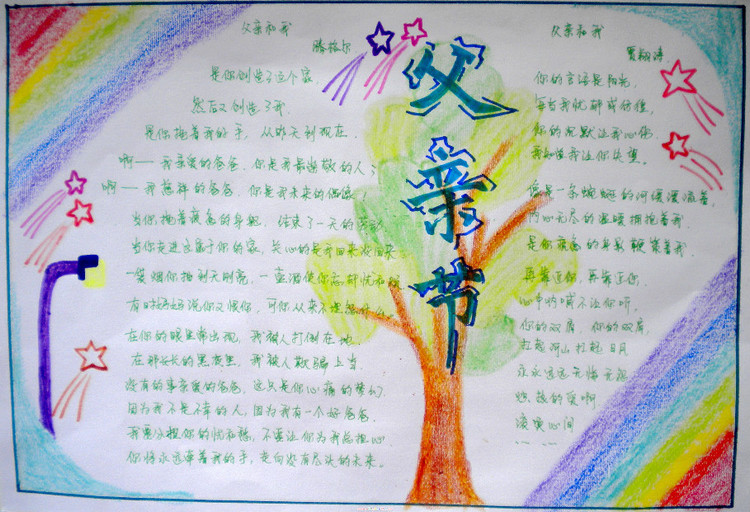 父亲节
父亲和我
腾格尔
是你创造了这个家,
然后又创造了我.
是你拖着我的手, 从昨天到现在.
啊——我亲爱的爸爸, 你是我最尊敬的人;
啊——我慈祥的爸爸, 你是我未来的偶像
当你拖着疲惫的身躯, 结束了一天的劳动
当你走进这属于你的家, 关心的是我回来没回来
一袋烟你抽到天刚亮, 一壶酒使你忘却忧和烦
有时妈妈说你又恨你, 可你从来不
在你的眼里常出现, 我被人打倒在地.
在那长长的黑夜里, 我被人欺骗上当.
没有的事亲爱的爸爸, 这只是你心痛的梦幻.
因为我不是不幸的人, 因为我有一个好爸爸.
我要分担你的忧和愁, 不要让你为我总担心
你将永远牵着我的手, 走向没有尽头的未来.
父亲和我
你的言语是阳光,
每当我忧郁或彷徨,
你的沉默让我心伤
我知道我让你失望.
像是一条蜿蜒的河缓缓流着
内心无尽的温暖拥抱着我
是你疲惫的身影 鞭策着我
再靠近你, 再靠近你,
心中悄悄不让你听.
你的双肩, 你的双肩,
扛起河山 扛起日月
永永远远无悔无怨
炽热的爱啊
滚烫心间
… …